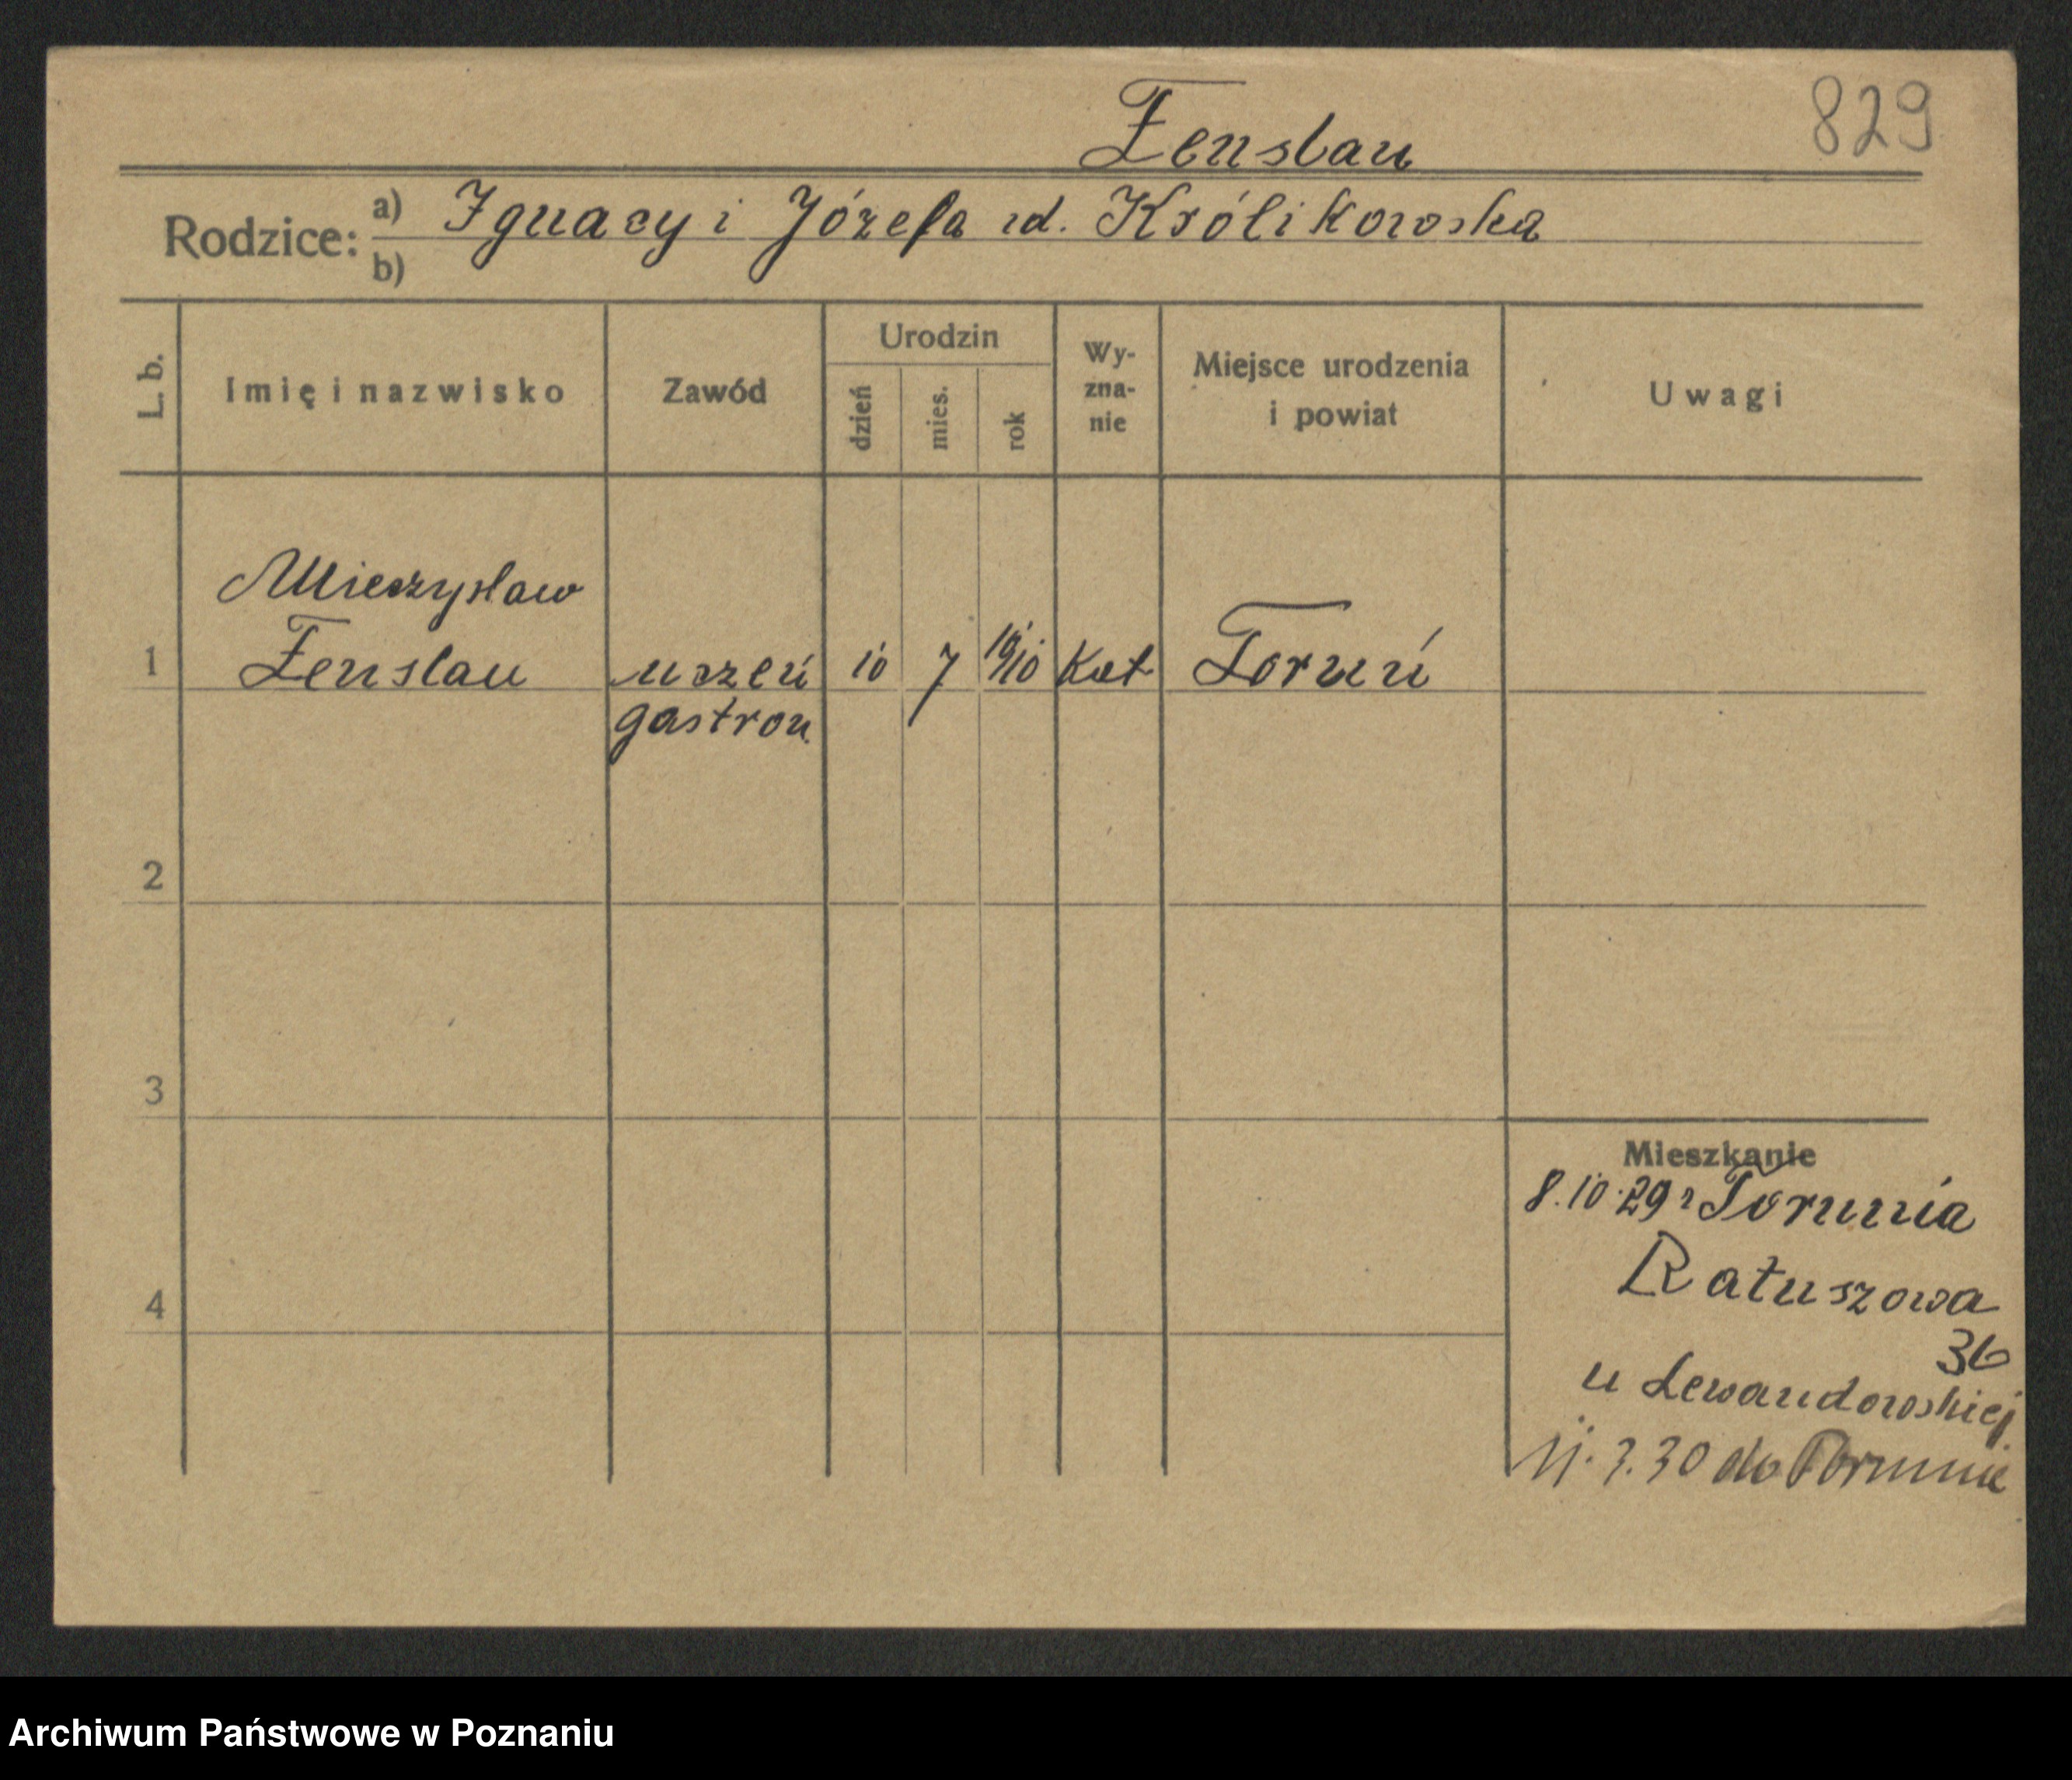 829
Żenslau
Rodzice: a) Ignacy i Józefa zd. Królikowska
b)
L. b.
Imię i nazwisko
Zawód
Urodzin
dzień
mies.
rok
Wy-
zna-
nie
Miejsce urodzenia
i powiat
Uwagi
Mieczysław
1 Żenslau uczeń 10 7 1910 Kat Toruń
gastron.
2
3
4
Mieszkanie
8.10.29 z Torunia
Ratuszowa
36
u Lewandowskiej
11. 3. 30 do Torunia
Archiwum Państwowe w Poznaniu